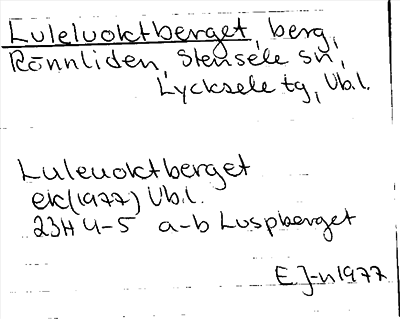 Luleluoktberget, berg,
Rönnliden, Stensele sn,
Lycksele tg, Vb.l.
Luleuoktberget
ek(1977) Vb.l.
23H 4-5 a-b Luspberget
E J-n 1977